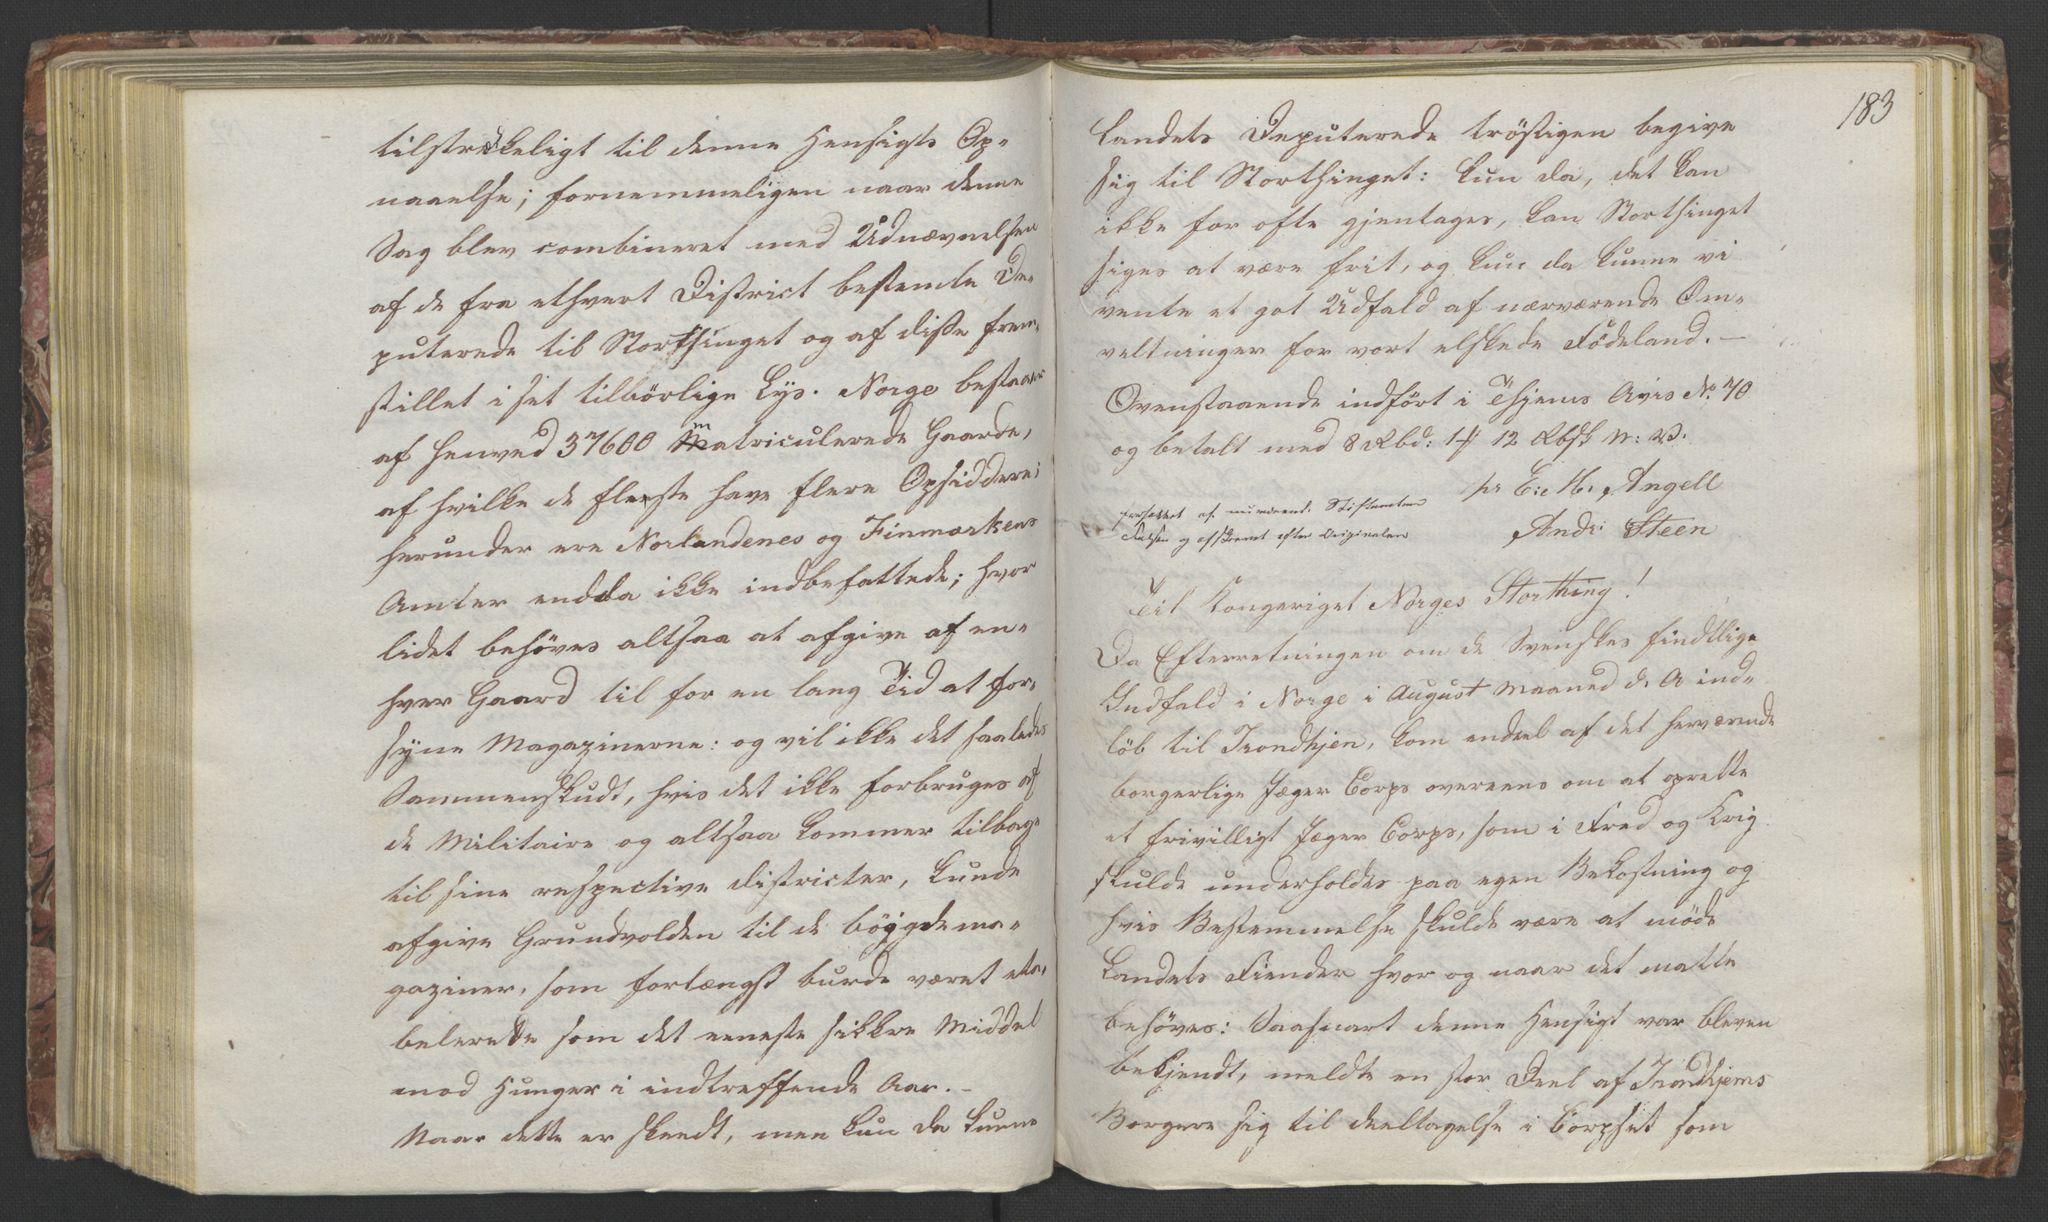 tilstrækeligt til denne Hensigts Op-
naaelse; fornemmeligen naar denne
Sag blev combineret med Udnævnelsen
af de fra ethvert District bestemte De-
puterede til Storthinget og af disse frem-
stillet i sit tilbörlige Lys. Norge bestaaer
af henved 37600 matriculerede Gaarde,
af hvilke de fleeste have flere Opsiddere;
herunder ere Norlandenes og Finmarkens
Amter endda ikke indbefattede; hvor
lidet behöves altsaa at afgive af en-
hver Gaard til for en lang Tid at for-
syne Magazinerne: og vil ikke det saaledes
Sammenskudt, hvis det ikke forbruges af
de Militaire og altsaa kommer tilbage
til sine respective districter, kunde
afgive Grundvolden til de böygdema-
gaziner, som forlængst burde været eta-
belerede som det eeneste sikkre Middel
mod Hunger i indtreffende Aar. -
Naar dette er skeedt, men kun da kunne
183
Landets Deputerede tröstigen begive
sig til Storthinget: kun da, det kan
ikke for ofte gjentages, kan Storthinget
siges at være frit, og kun da kunne vi
vente et got Udfald af nærværende Om-
veltninger for vort elskede Födeland. -
Ovenstaaende indfört i Thjems Avis No. 70
og betalt med 8 Rbd: 1 ƒ 12 Rbsk N: V.
pr E: H: Angell
forfattet af nuværende Stiftamtm
Falsen og afskrevet efter Originalen
Andr: Steen
Til Kongeriget Norges Storthing!
Da Efterretningen om de Svenskes fiendtlige
Indfald i Norge i August Maaned d. A ind-
löb til Trondhjem, kom endeel af det herværende
borgerlige Jæger Corps overeens om at oprette
et frivilligt Jæger Corps, som i Fred og Krig
skulde underholdes paa egen Bekostning og
hvis Bestemmelse skulde være at möde
Landets Fiender hvor og naar det maatte
behöves: Saasnart denne Hensigt var bleven
bekjendt, meldte en stor Deel af Trondhjems
Borgere sig til deeltagelse i Corpset som